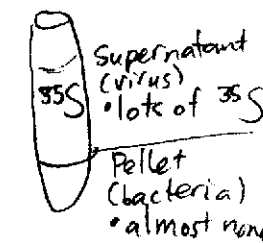 Supernatant
(virus)
• lots of ³⁵S
³⁵S
Pellet
(bacteria)
• almost none